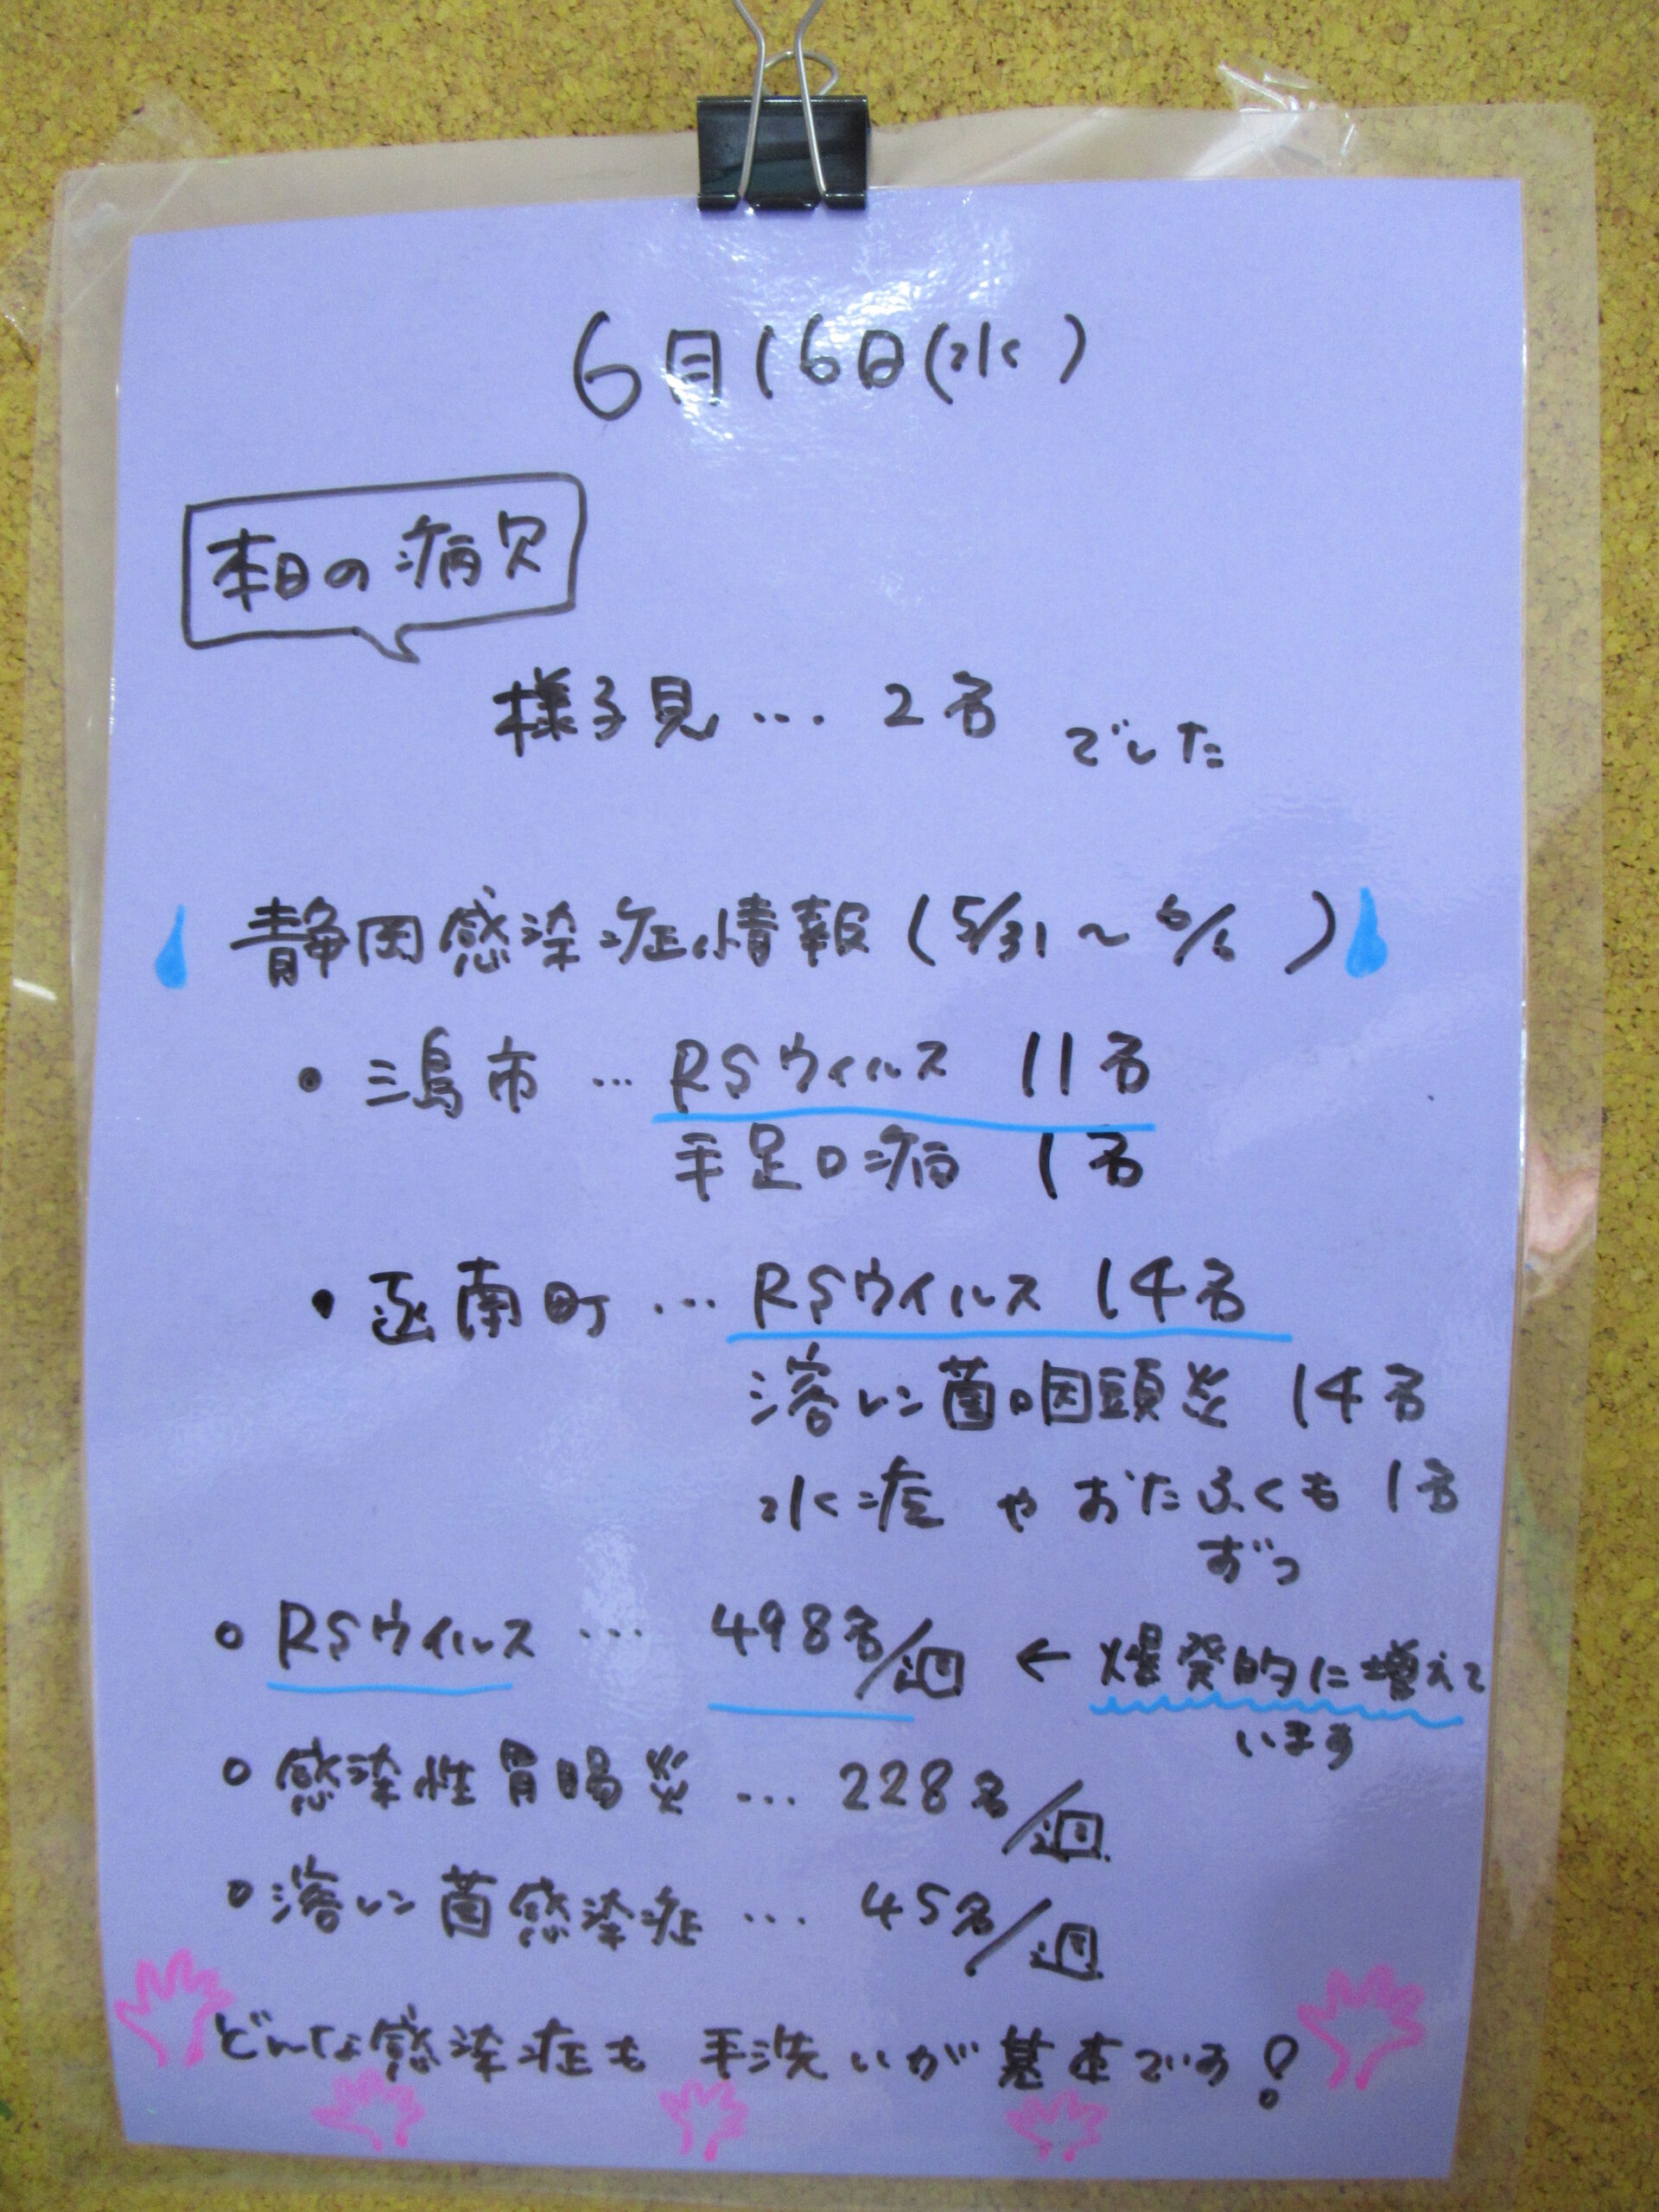 6月16日(水)
本日の病欠
様子見… 2名 でした
静岡感染症情報(5/31～6/6)
• 三島市 … RSウィルス 11名
手足口病 1名
• 函南町 … RSウイルス 14名
溶レン菌咽頭炎 14名
水痘 や おたふくも 1名
ずつ
○ RSウイルス … 498名/週 ← 爆発的に増えて
います
○ 感染性胃腸炎 … 228名/週
○ 溶レン菌感染症 … 45名/週
どんな感染症も 手洗いが基本です!